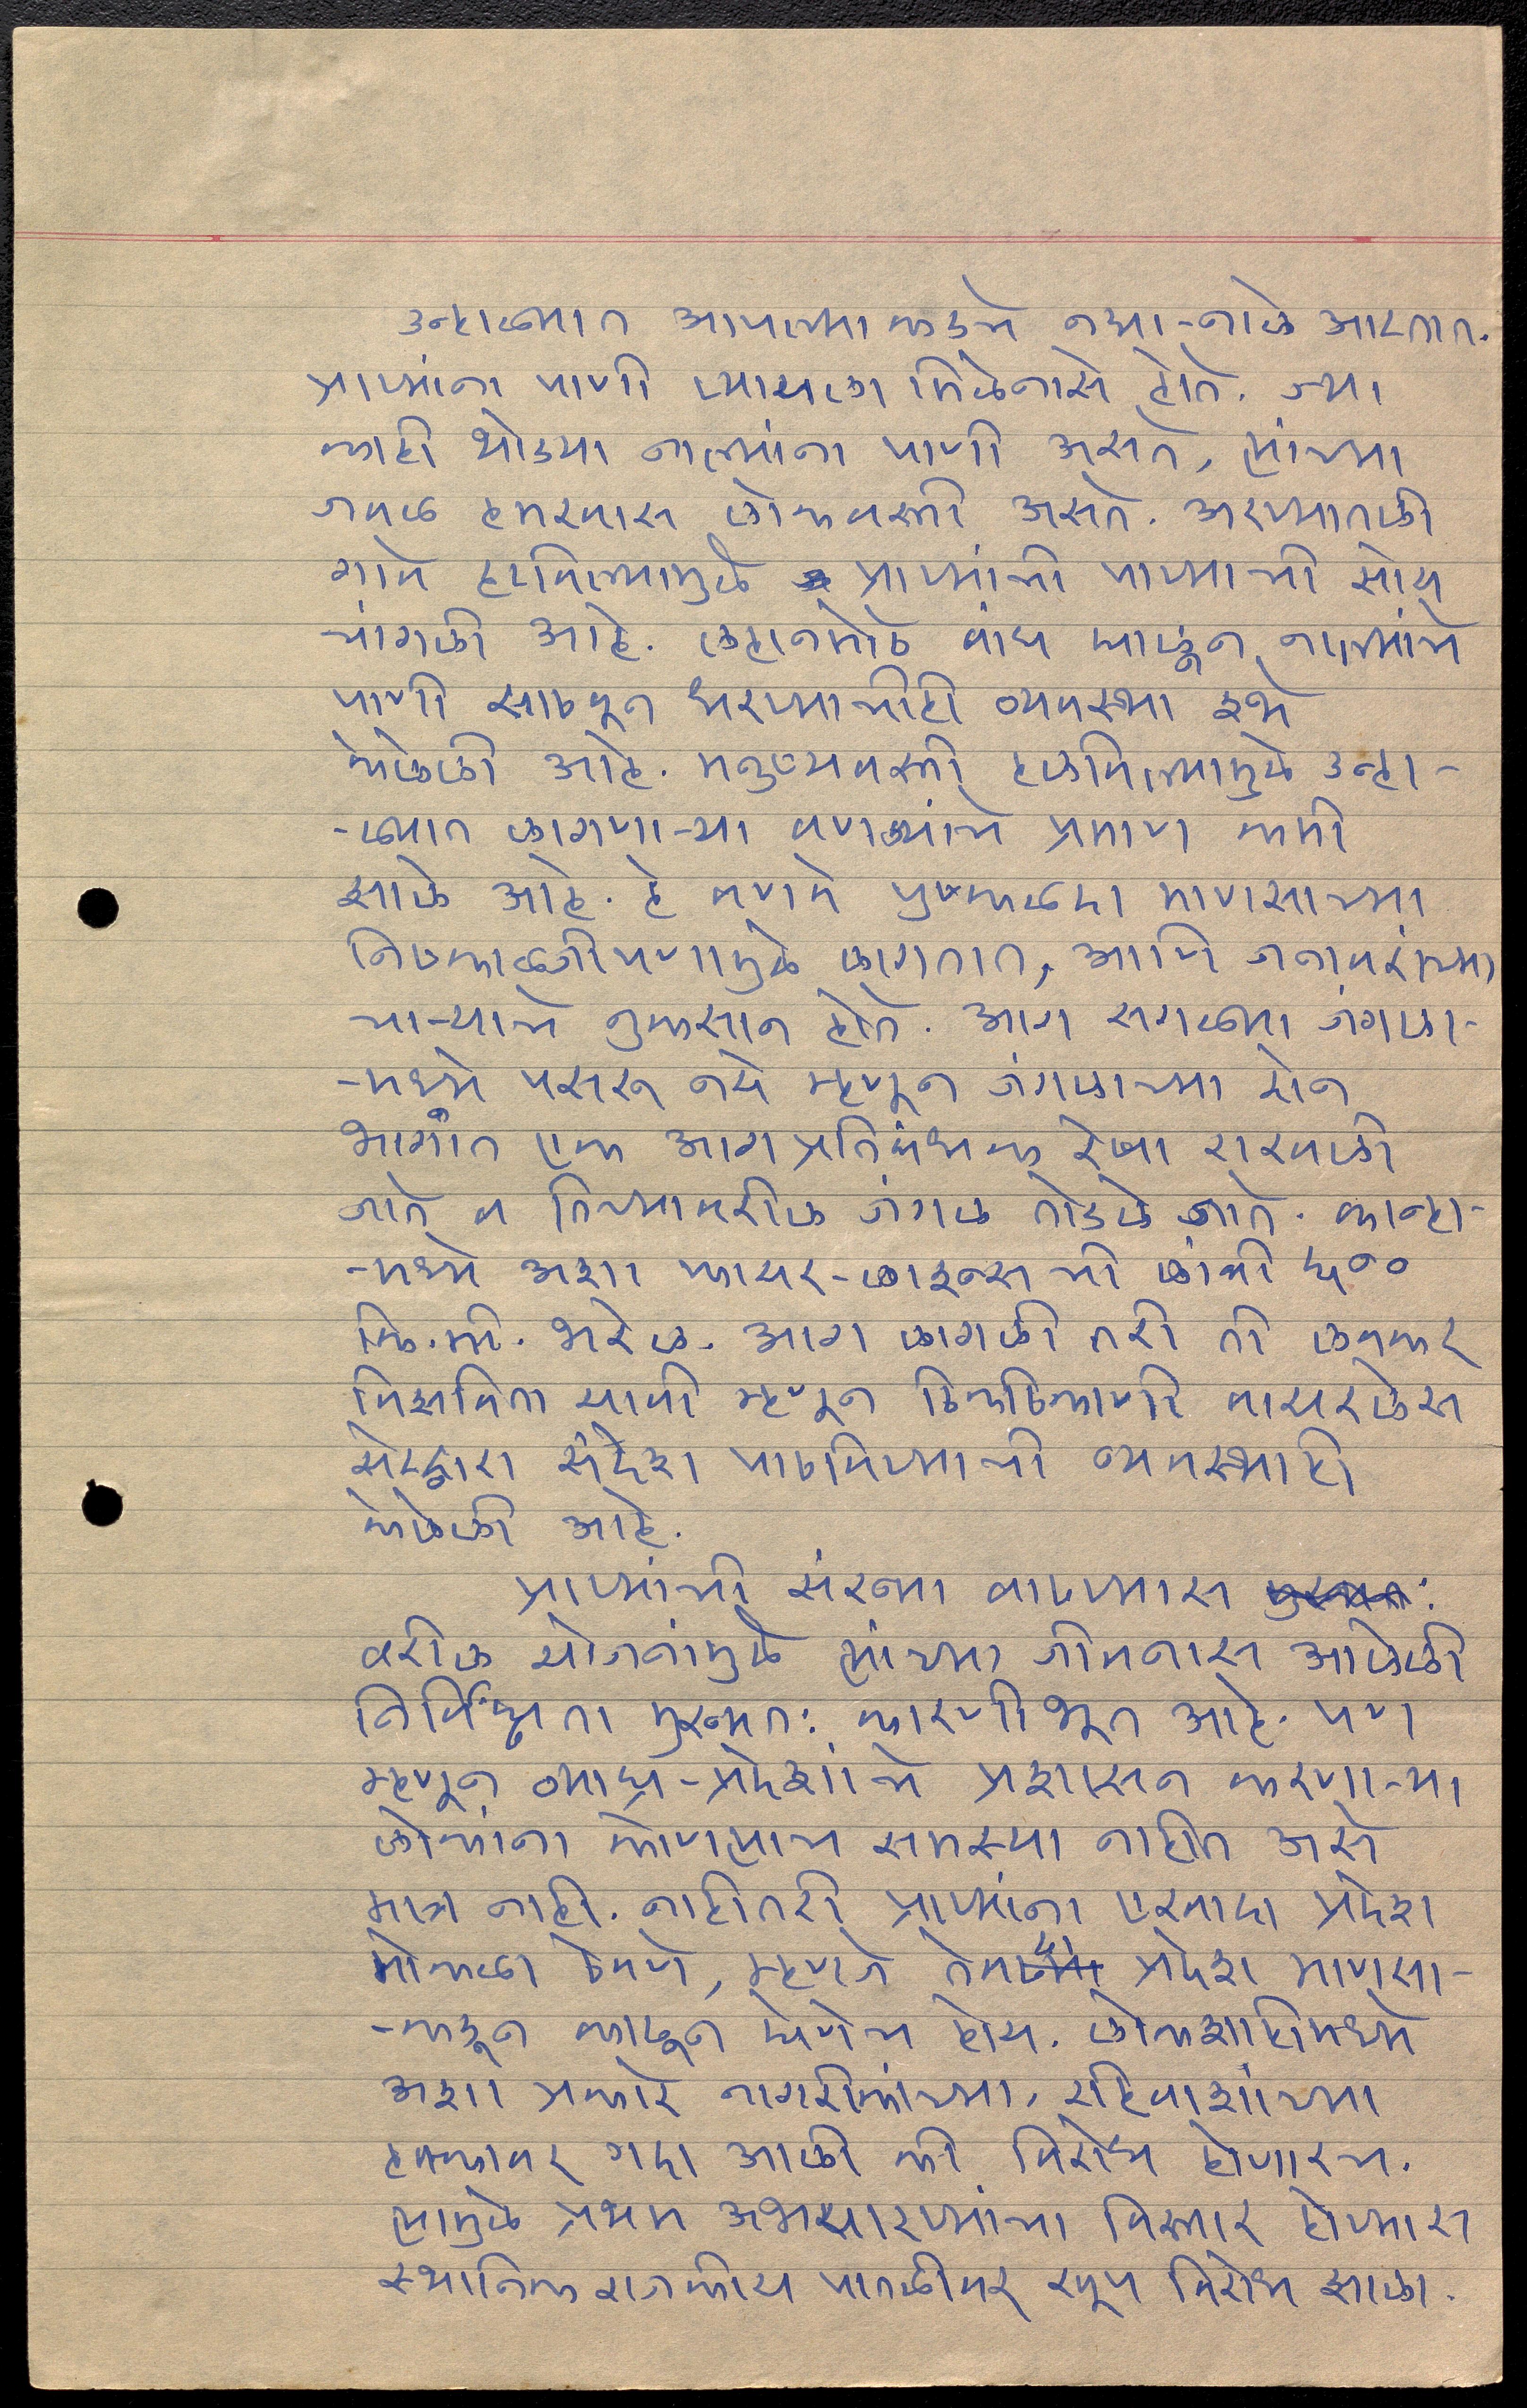 उन्हाळ्यात आपल्याकडचे नद्या-नाले आटतात.
प्राण्यांना पाणी प्यायला मिळेनासे होते. ज्या
काही थोड्या नाल्यांना पाणी असते, त्यांच्या
जवळ हमखास लोकवस्ती असते. अरण्यातली
गावे हलविल्यामुळे प्राण्यांची पाण्याची सोय
चांगली आहे. लहानमोठे बांध घालून, नाल्यांचे
पाणी साठवून धरण्याचीही व्यवस्था इथे
केलेली आहे. मनुष्यवस्ती हलविल्यामुळे उन्हा-
-ळ्यात लागणाऱ्या वणव्यांचे प्रमाण कमी
झाले आहे. हे वणवे पुष्कळदा माणसाच्या
निष्काळजीपणामुळे लागतात, आणि जनावरांच्या
चाऱ्याचे नुकसान होते. आग सगळ्या जंगला-
-मध्ये पसरू नये म्हणून जंगलाच्या दोन
भागांत एक आग प्रतिबंधक रेषा राखली
जाते व तिच्यावरील जंगल तोडले जाते. कान्हा-
-मध्ये अशा फायर-लाइन्सची लांबी ६५००
कि.मी. भरेल. आग लागली तरी ती लवकर
विझविता यावी म्हणून ठिकठिकाणी वायरलेस
सेटद्वारा संदेश पाठविण्याची व्यवस्थाही
केलेली आहे.
प्राण्यांची संख्या वाढण्यास
वरील योजनांमुळे त्यांच्या जीवनास आलेली
निर्विघ्नता मुख्यत: कारणीभूत आहे. पण
म्हणून व्याघ्र-प्रदेशांचे प्रशासन करणाऱ्या
लोकांना कोणत्याच समस्या नाहीत असे
मात्र नाही. नाहीतरी प्राण्यांना एखादा प्रदेश
मोकळा ठेवणे, म्हणजे तेवढा प्रदेश माणसा-
-कडून काढून घेणेच होय. लोकशाहीमध्ये
अशा प्रकारे नागरीकांच्या, रहिवाशांच्या
हक्कावर गदा आली की विरोध होणारच.
त्यामुळे प्रथम अभयारण्यांचा विस्तार होण्यास
स्थानिक राजकीय पातळीवर खूप विरोध झाला.